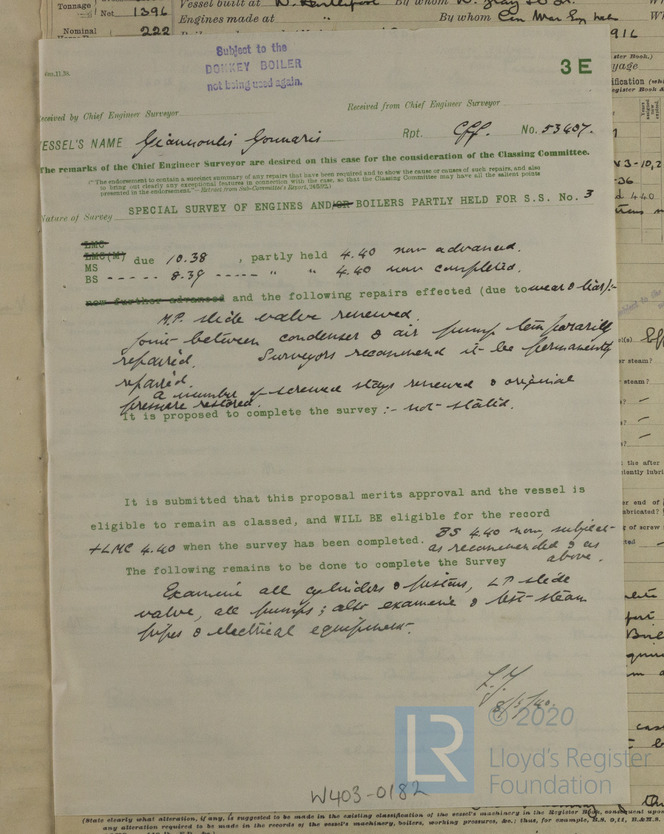 Tonnage
Net 1396
Vessel built at W. Hartlepool By whom W. Gray & Co.
Engines made at " By whom Cen Mar Eng
Nominal 222
916
Subject to the
DONKEY BOILER
not being used again.
3E
Received by Chief Engineer Surveyor
Received from Chief Engineer Surveyor
VESSEL'S NAME Giannoulis Gounaris Rpt. Gff. No. 53407.
The remarks of the Chief Engineer Surveyor are desired on this case for the consideration of the Classing Committee.
"The endorsement to contain a succinct summary of any repairs that have been required and to show the cause or causes of such repairs, and also
to bring out clearly any exceptional features in connection with the case, so that the Classing Committee may have all the salient points
presented in the endorsement."
Nature of Survey SPECIAL SURVEY OF ENGINES AND/OR BOILERS PARTLY HELD FOR S.S. No. 3
LMC
LMC(M)
MS due 10.38 , partly held 4.40 now advanced.
BS ----- 8.39 ----- " " 4.40 now completed.
now further advanced and the following repairs effected (due to wear & tear):-
H.P. slide valve renewed.
Joint between condenser & air pump temporarily
repaired. Surveyors recommend it be permanently
repaired.
A number of screwed stays renewed & original
pressure restored.
It is proposed to complete the survey :- not stated.
It is submitted that this proposal merits approval and the vessel is
eligible to remain as classed, and WILL BE eligible for the record
+LMC 4.40 when the survey has been completed. BS 4.40 now, subject
as recommended & as
above.
The following remains to be done to complete the Survey
Examine all cylinders & pistons, LP slide
valve, all pumps; also examine & test steam
pipes & electrical equipment.
8/5/40.
LR
© 2020
Lloyd's Register
Foundation
W403-0182
(State clearly what alteration, if any, is suggested to be made in the existing classification of the vessel's machinery in the Register Book, consequent upon
any alteration required to be made in the records of the vessel's machinery, boilers, working pressures, &c.; thus, for example,